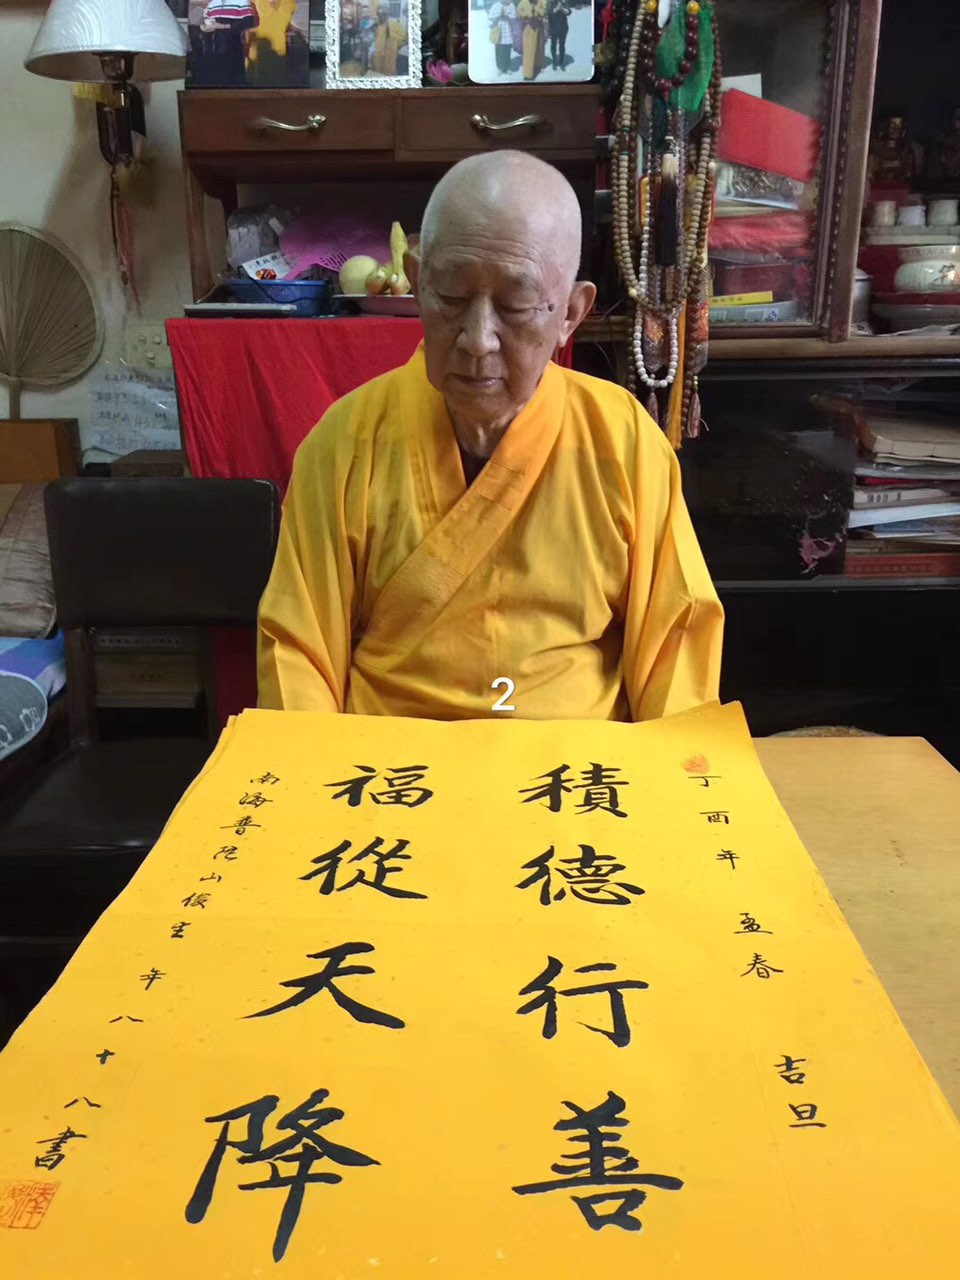 丁酉年孟春吉旦
積德行善
福從天降
南海普陀山俊生年八十八書
2